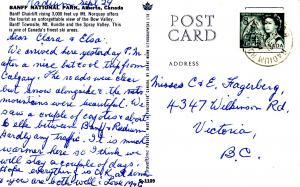 Radium Sept 24
BANFF NATIONAL PARK, Alberta, Canada
Banff Chairlift rising 3,000 feet up Mt. Norquay offers
the tourist an unforgettable view of the Bow Valley,
Banff Townsite, Mt. Rundle and the Spray Valley. This
is one of Canada's finest ski areas.
Dear Clara & Elsa.
We arrived here yesterday P.M.
after a nice but cool trip from
Calgary. The roads were clear
but snow alongside & the
mountains were beautiful. We
saw a couple of coyotes & about
between Banff & Radium
Hardly any traffic. It is much
warmer here so I think we
will stay a couple of days.
Hope everything is O.K. at home
& you are both well. Love
POST
CARD
ADDRESS
CANADA
Misses C & E. Fagerberg
4347 Wilkinson Rd
Victoria,
B.C.